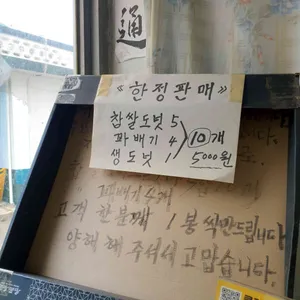 通
《한정판매》
찹쌀도넛 5
꽈배기 4 10개
생도넛 1 5000원
꽈배기 4개
고객 한분께 1봉씩만드립니다
양해해 주세세 고맙습니다.